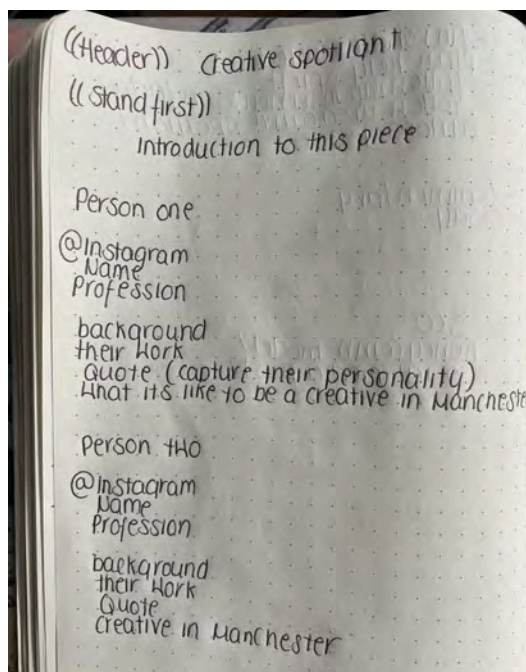 ((Header)) Creative spotlight
((Standfirst))
Introduction to this piece
Person one
@instagram
Name
Profession
background
their work
Quote (capture their personality)
What its like to be a creative in Manchester
Person two
@instagram
Name
Profession
background
their work
Quote
Creative in Manchester